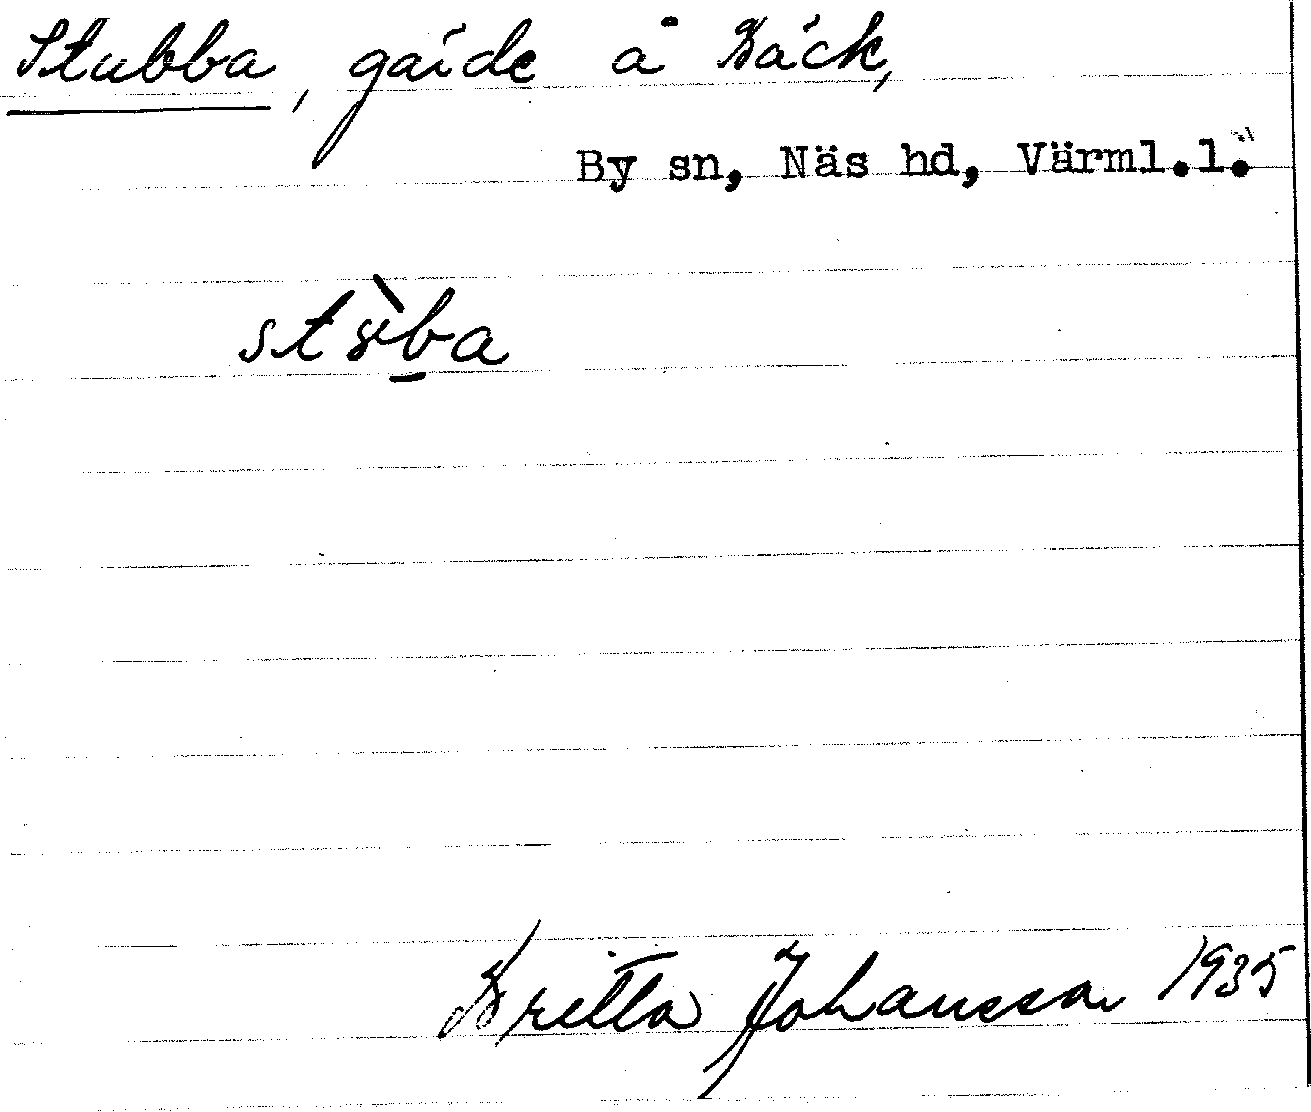 Stubba, gärde å Bäck,
By sn, Näs hd, Värml.l.
Britta Johansson 1935